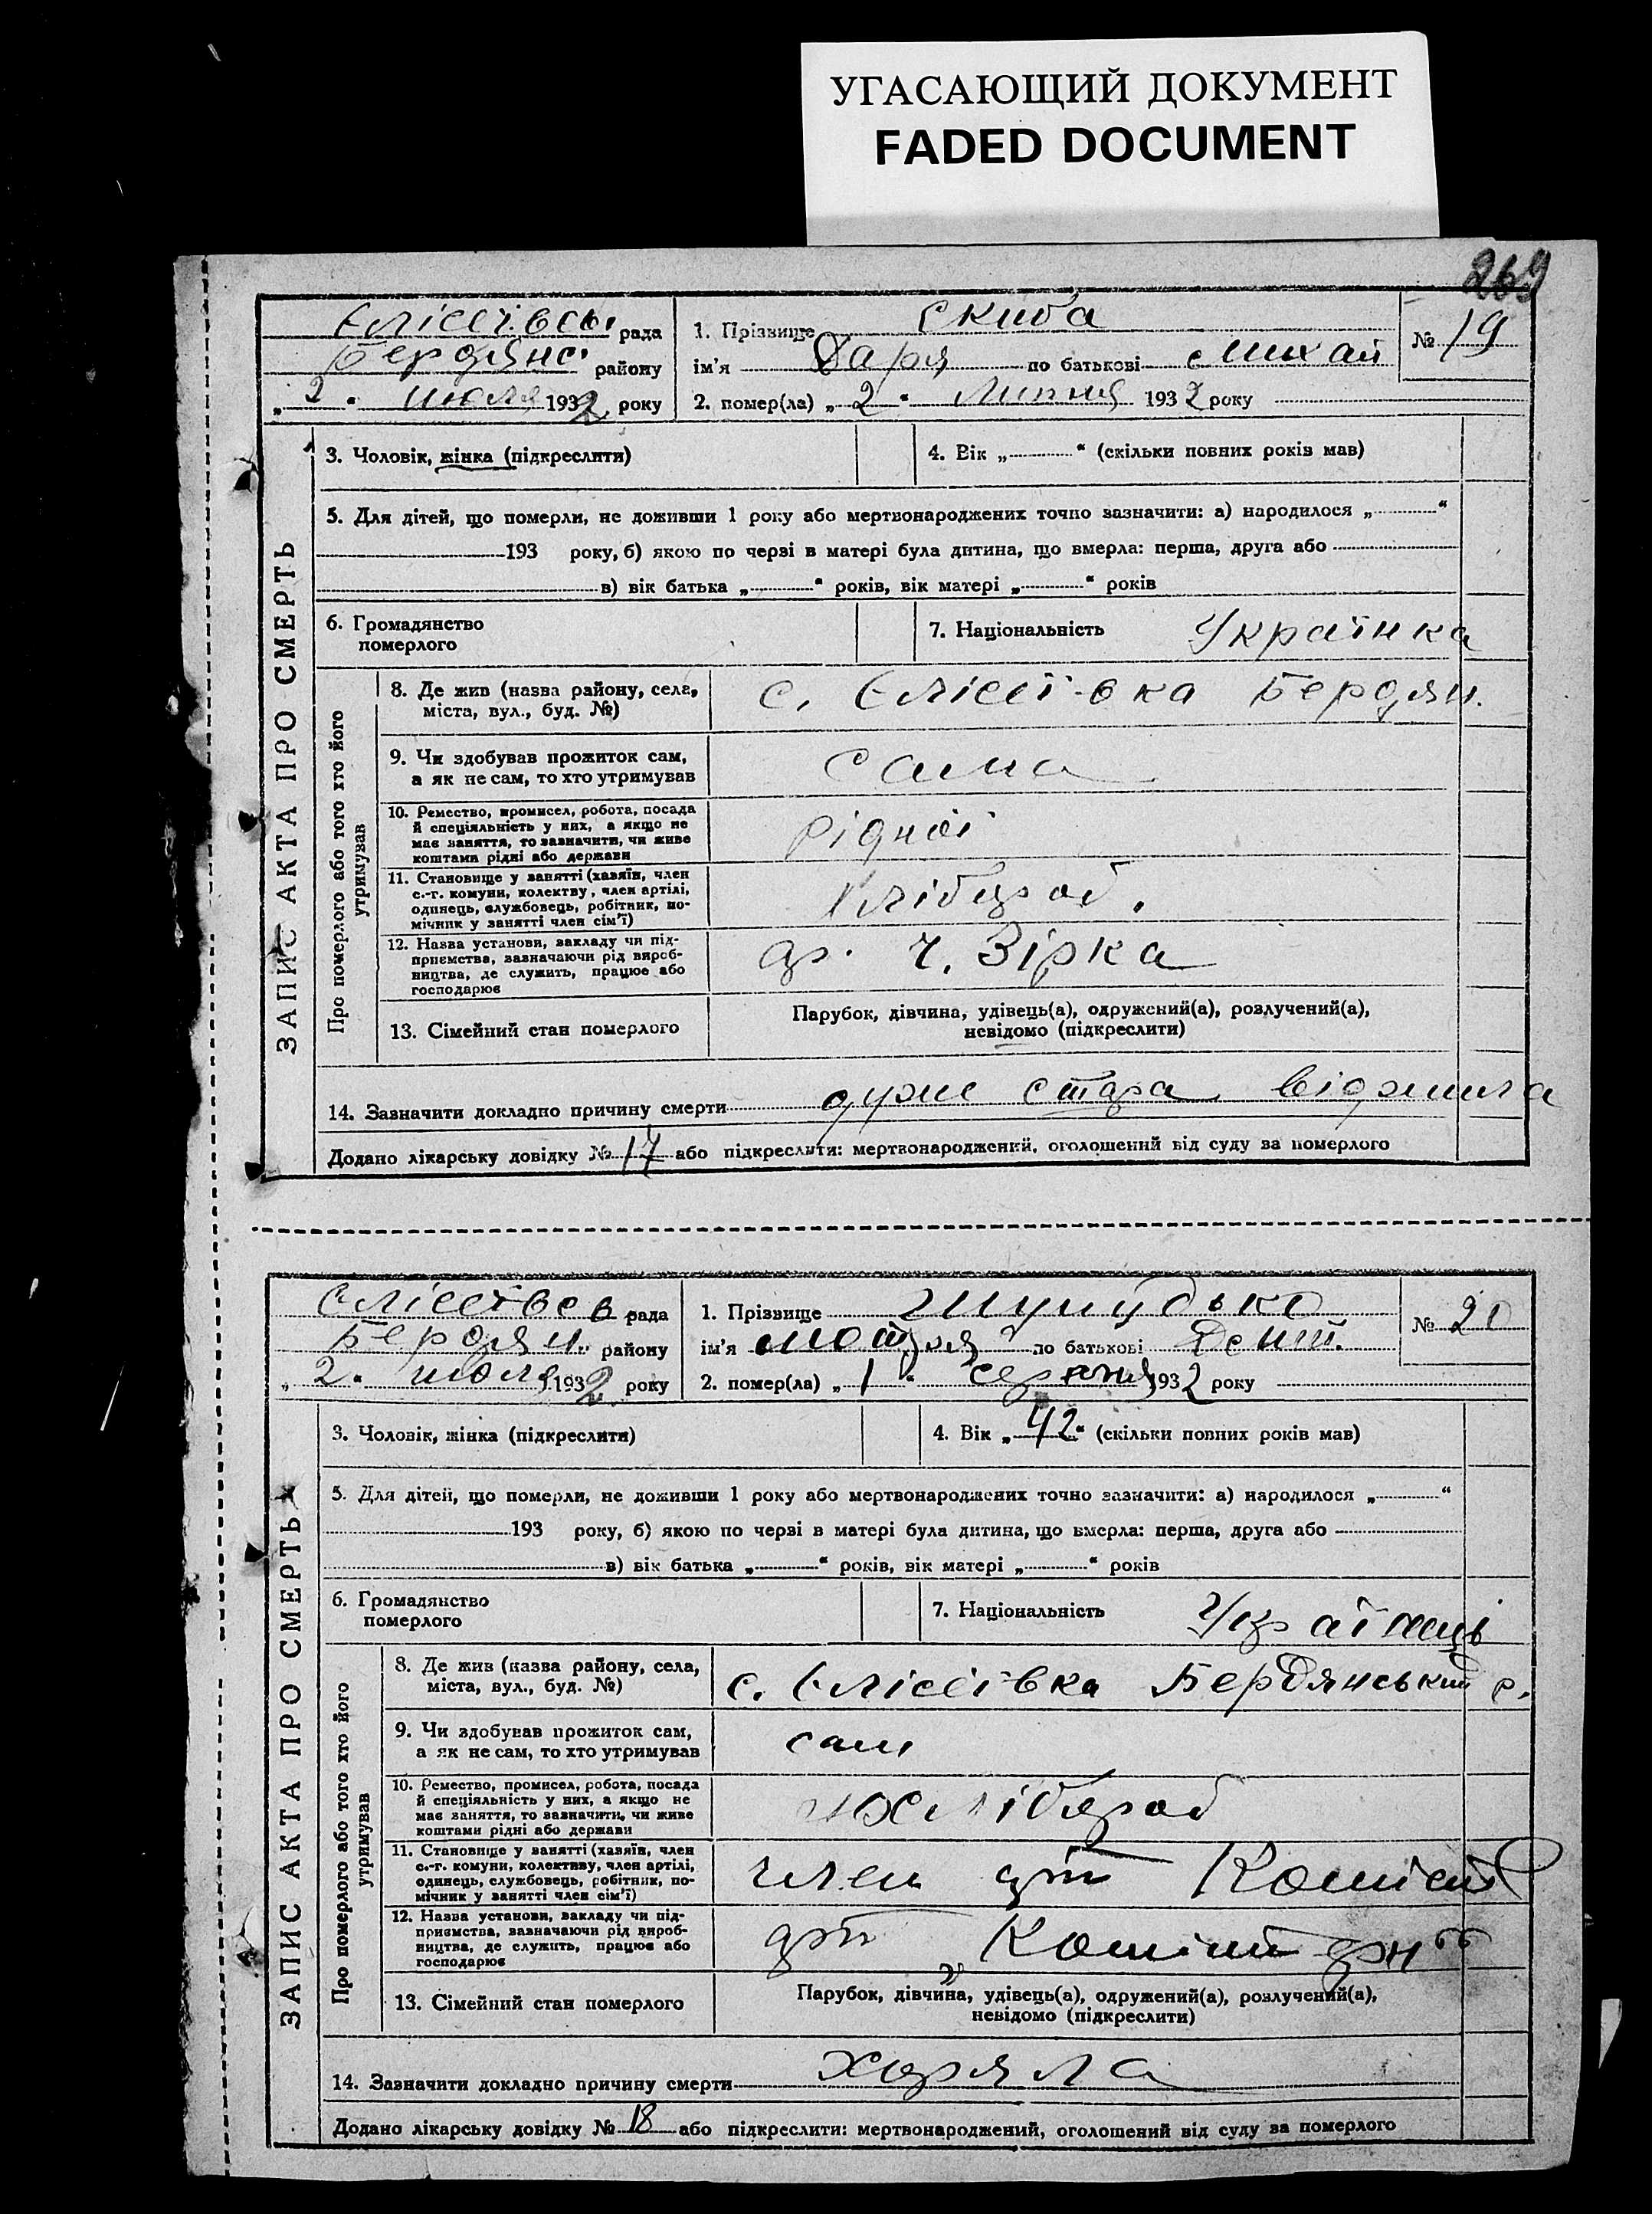 УГАСАЮЩИЙ ДОКУМЕНТ
FADED DOCUMENT
269
ЗАПИС АКТА ПРО СМЕРТЬ
Єлісеївсь рада
Бердянс району
„ 2 " июля 1932 року
1. Прізвище Скиба
ім'я Даря по батькові Михай
№ 19
2. помер(ла) „ 2 " Липня 1932 року
3. Чоловік, жінка (підкреслити)
4. Вік „ " (скільки повних років мав)
5. Для дітей, що померли, не доживши 1 року або мертвонароджених точно зазначити: а) народилося „ "
193 року, б) якою по черзі в матері була дитина, що вмерла: перша, друга або
в) вік батька „ " років, вік матері „ " років
6. Громадянство
померлого
7. Національність Українка
Про померлого або того хто його
утримував
8. Де жив (назва району, села,
міста, вул., буд. №)
с. Єлісеївка Бердян.
9. Чи здобував прожиток сам,
а як не сам, то хто утримував
сама
10. Ремество, промисел, робота, посада
й спеціяльність у них, а якщо не
має заняття, то зазначити, чи живе
коштами рідні або держави
рідної
11. Становище у занятті (хазяїн, член
с.-г. комуни, колектву, член артілі,
одинець, службовець, робітник, по-
мічник у занятті член сім'ї)
Хлібороб.
12. Назва установи, закладу чи під-
приємства, зазначаючи рід вироб-
ництва, де служить, працює або
господарює
ар. Ч. Зірка
13. Сімейний стан померлого
Парубок, дівчина, удівець(а), одружений(а), розлучений(а),
невідомо (підкреслити)
14. Зазначити докладно причину смерти дуже стара віджила
Додано лікарську довідку № 17 або підкреслити: мертвонароджений, оголошений від суду за померлого
ЗАПИС АКТА ПРО СМЕРТЬ
Єлісеївсь рада
Бердян. району
„ 2 " июля 1932 року
1. Прізвище
ім'я по батькові Дмит.
№ 20
2. помер(ла) „ 1 " серпня 1932 року
3. Чоловік, жінка (підкреслити)
4. Вік „ 42 " (скільки повних років мав)
5. Для дітей, що померли, не доживши 1 року або мертвонароджених точно зазначити: а) народилося „ "
193 року, б) якою по черзі в матері була дитина, що вмерла: перша, друга або
в) вік батька „ " років, вік матері „ " років
6. Громадянство
померлого
7. Національність Українець
Про померлого або того хто його
утримував
8. Де жив (назва району, села,
міста, вул., буд. №)
с. Єлісеївка Бердянський р.
9. Чи здобував прожиток сам,
а як не сам, то хто утримував
сам
10. Ремество, промисел, робота, посада
й спеціяльність у них, а якщо не
має заняття, то зазначити, чи живе
коштами рідні або держави
хлібороб
11. Становище у занятті (хазяїн, член
с.-г. комуни, колективу, член артілі,
одинець, службовець, робітник, по-
мічник у занятті член сім'ї)
член арт Комінт
12. Назва установи, закладу чи під-
приємства, зазначаючи рід вироб-
ництва, де служить, працює або
господарює
арт „Комінтерн"
13. Сімейний стан померлого
Парубок, дівчина, удівець(а), одружений(а), розлучений(а),
невідомо (підкреслити)
14. Зазначити докладно причину смерти хоряла
Додано лікарську довідку № 18 або підкреслити: мертвонароджений, оголошений від суду за померлого